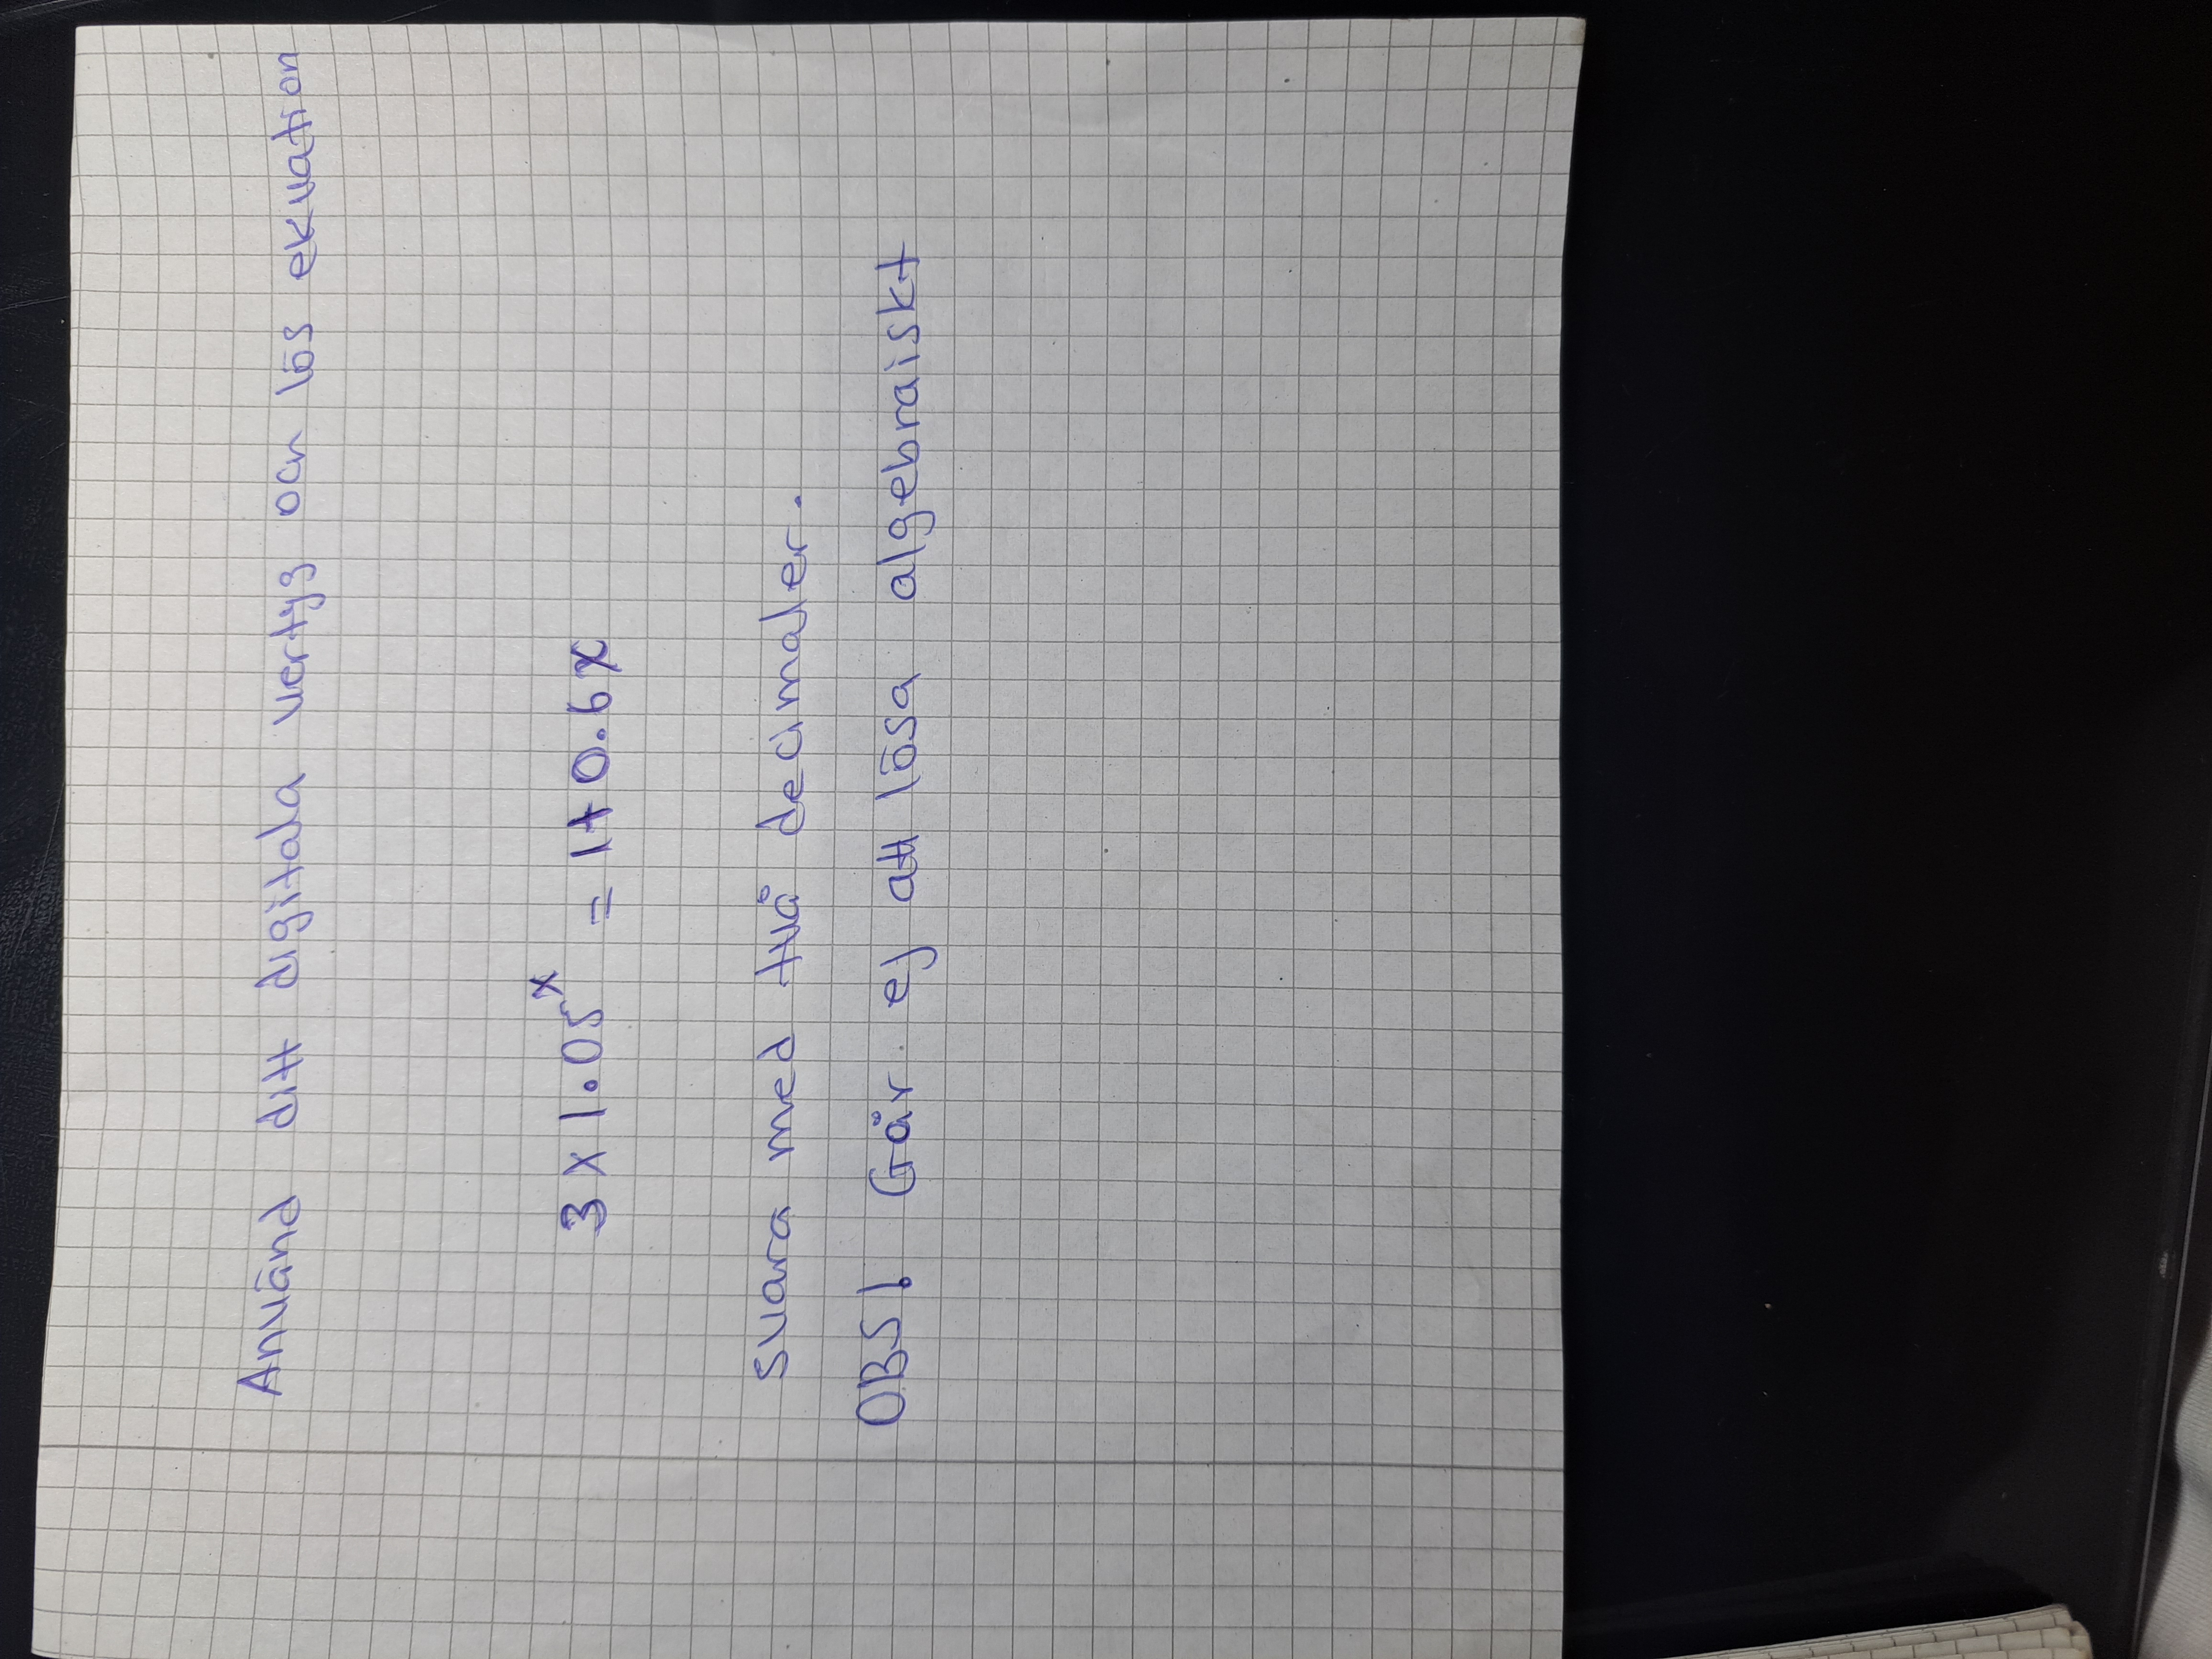 Använd ditt digitala vertyg och lös ekvation
3 x 1.05^x = 1+0.6x
svara med två decimaler.
OBS! Går ej att lösa algebraiskt